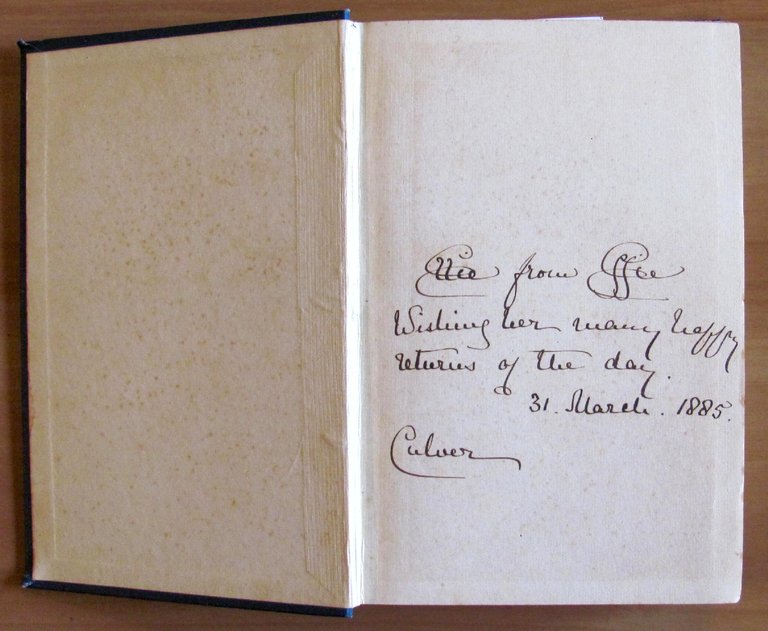 from Effie
Wishing her many happy
returns of the day.
31. March. 1885.
Culver